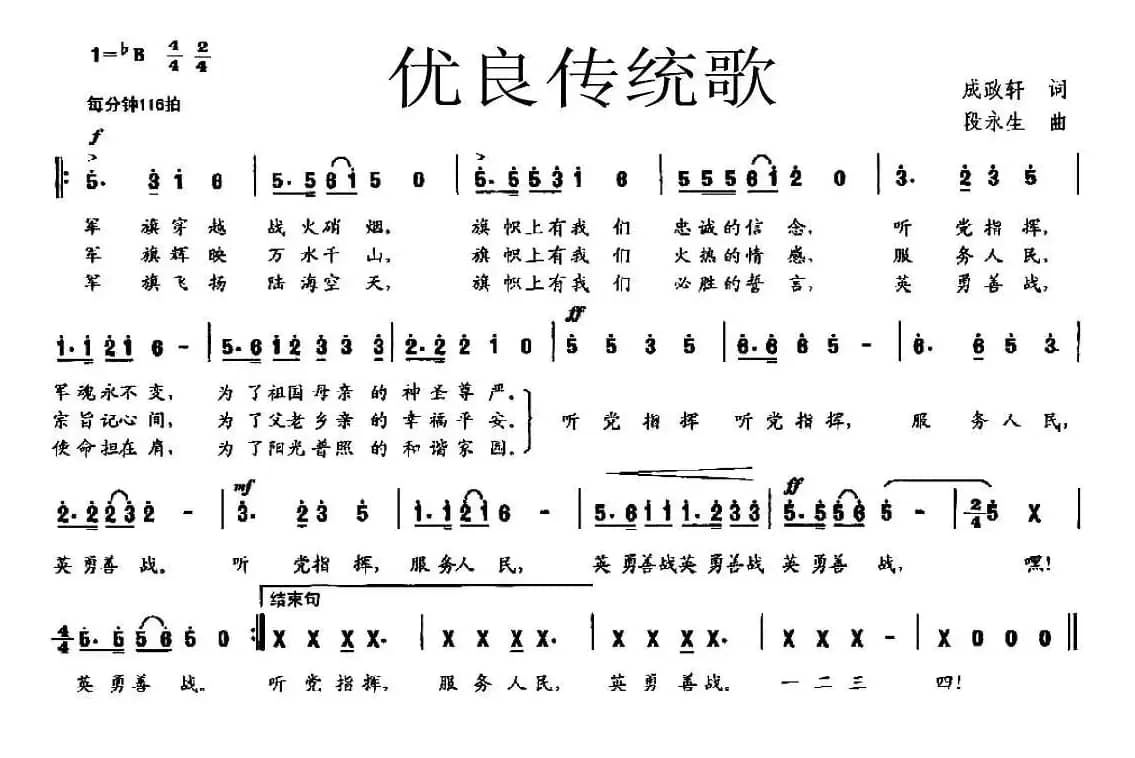 优良传统歌
1=♭B 4/4 2/4
每分钟116拍
成政轩 词
段永生 曲
f
5. 3 1 6 | 5. 5 6 1 5 0 | 5. 5 5 3 1 6 | 5 5 5 6 1 2 0 | 3. 2 3 5 |
军 旗穿越 战火硝烟， 旗帜上有我们 忠诚的信念， 听 党指挥，
军 旗辉映 万水千山， 旗帜上有我们 火热的情感， 服 务人民，
军 旗飞扬 陆海空天， 旗帜上有我们 必胜的誓言， 英 勇善战，
ff
1. 1 2 1 6 - | 5. 6 1 2 3 3 3 | 2. 2 2 1 0 | 5 5 3 5 | 6. 6 6 5 - | 6. 6 5 3 |
军魂永不变， 为了祖国母亲的神圣尊严。
宗旨记心间， 为了父老乡亲的幸福平安。 听党指挥 听党指挥， 服 务人民，
使命担在肩， 为了阳光普照的和谐家园。
mf ff
2. 2 2 3 2 - | 3. 2 3 5 | 1. 1 2 1 6 - | 5. 6 1 1 1. 2 3 3 | 5. 5 5 6 5 - | 2/4 5 X |
英勇善战。 听 党指挥， 服务人民， 英勇善战英勇善战 英勇善战， 嘿！
结束句
4/4 5. 5 5 6 5 0 :| X X X X. | X X X X. | X X X X. | X X X - | X 0 0 0 ‖
英勇善战。 听党指挥， 服务人民， 英勇善战。 一二三 四！